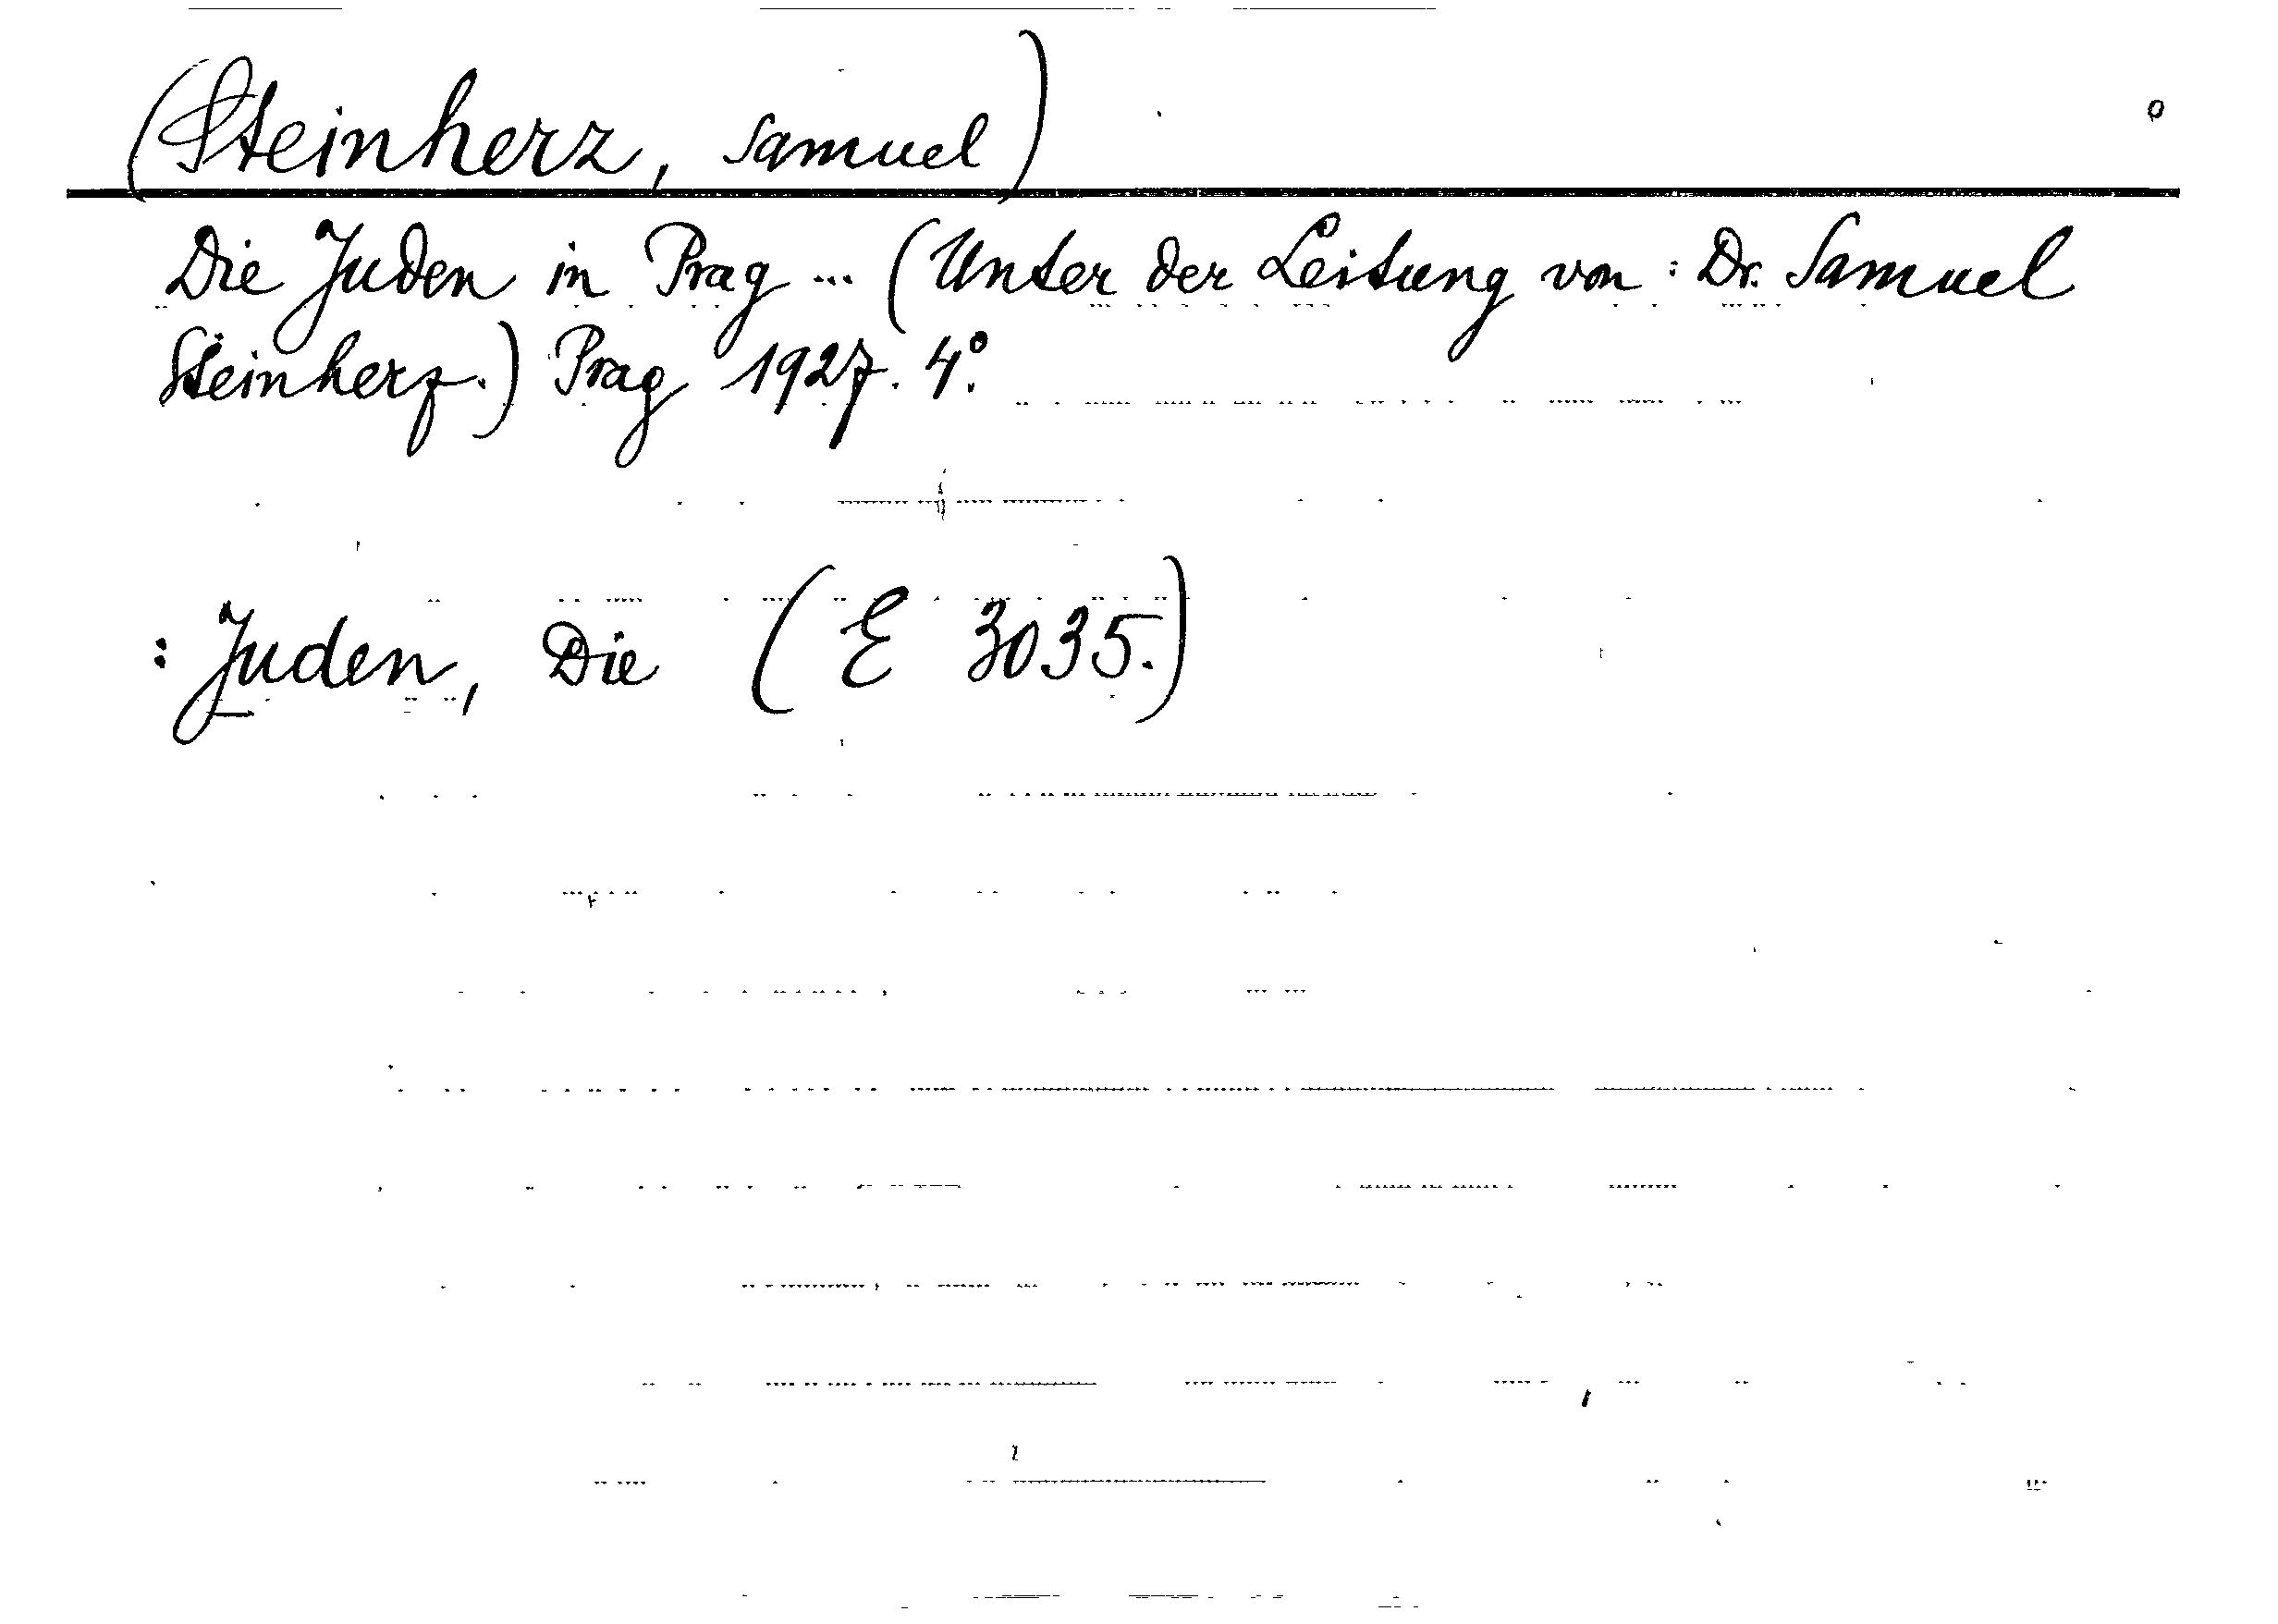 (Steinherz, Samuel)
Die Juden in Prag ... (Unter der Leitung von: Dr. Samuel
Steinherz.) Prag 1927. 4°.
: Juden, Die (E 3035.)